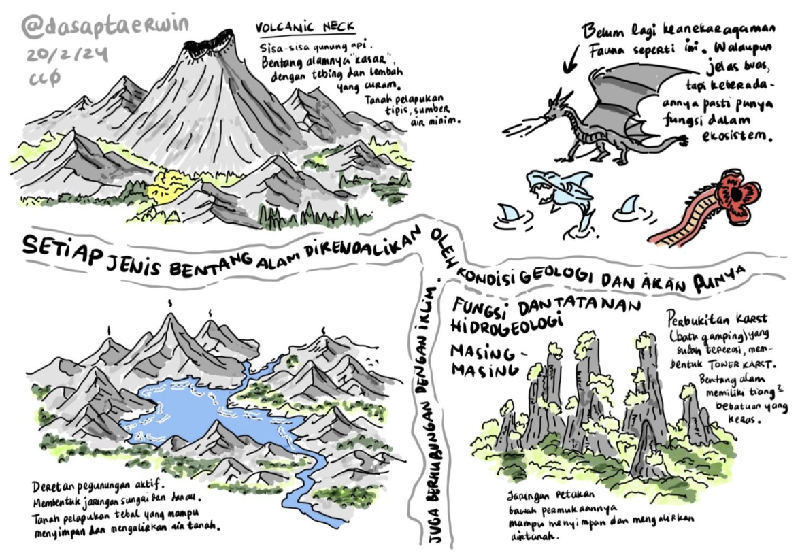 @dasaptaerwin
20/2/24
CC0
VOLCANIC NECK
Sisa-sisa gunung api.
Bentang alamnya "kasar",
dengan tebing dan lembah
yang curam.
Tanah pelapukan
tipis, sumber
air minim.
Belum lagi keanekaragaman
Fauna seperti ini. Walaupun
jelas buas,
tapi keberada-
annya pasti punya
fungsi dalam
ekosistem.
SETIAP JENIS BENTANG ALAM DIKENDALIKAN OLEH KONDISI GEOLOGI DAN AKAN PUNYA
FUNGSI DAN TATANAN
HIDROGEOLOGI
MASING-
MASING
JUGA BERHUBUNGAN DENGAN IKLIM.
Deretan pegunungan aktif.
Membentuk jaringan sungai dan danau.
Tanah pelapukan tebal yang mampu
menyimpan dan mengalirkan air tanah.
PERBUKITAN KARST
(batu gamping) yang
sudah tererosi, mem-
bentuk TOWER KARST.
Bentang alam
memiliki tiang2
bebatuan yang
keras.
Jaringan retakan
bawah permukaannya
mampu menyimpan dan mengalirkan
airtanah.